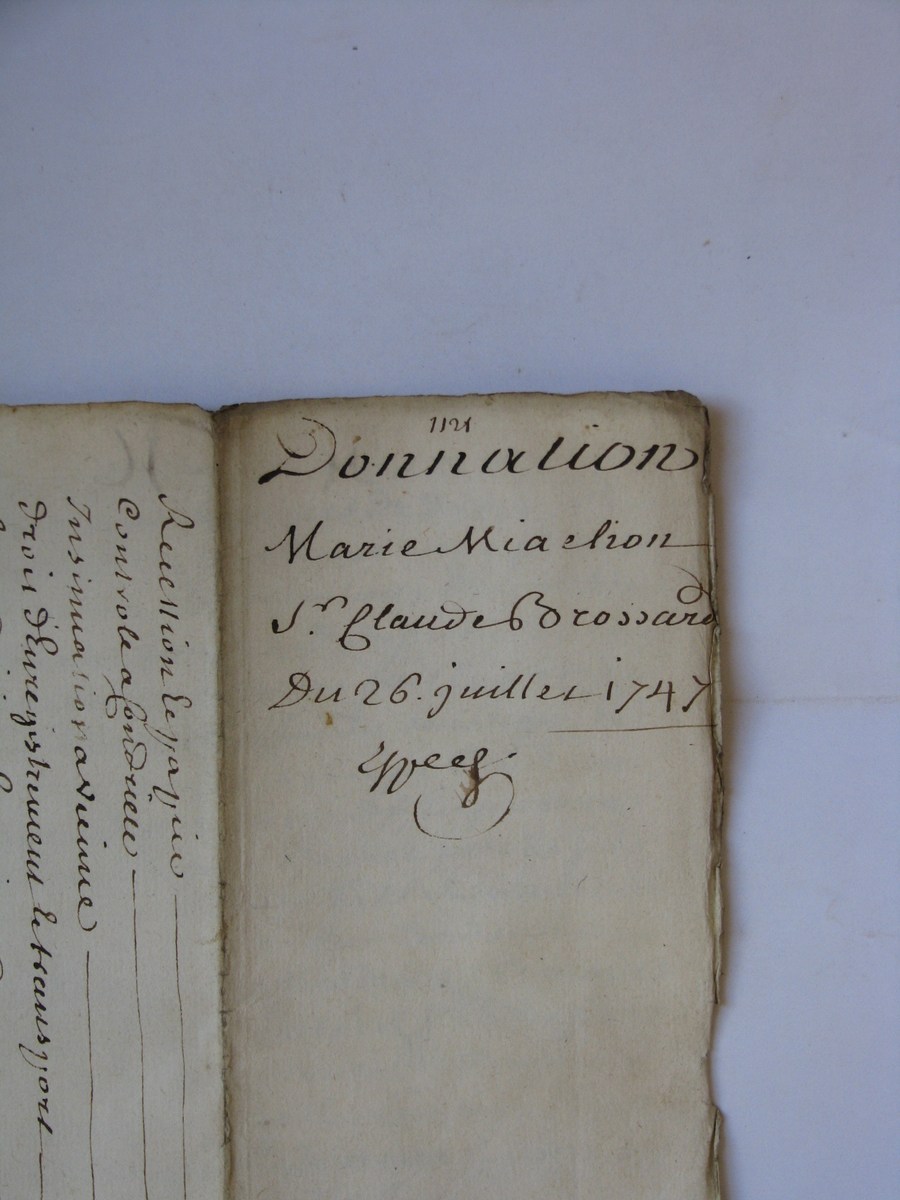 1121
Donnation
Marie Miachon
Sr. Claude Brossard
Du 26. juillet 1747
Expeé.
Recession Et papier
Controle a Condrieu
Insinuation a vienne
droit d'Enregistrement Et transport